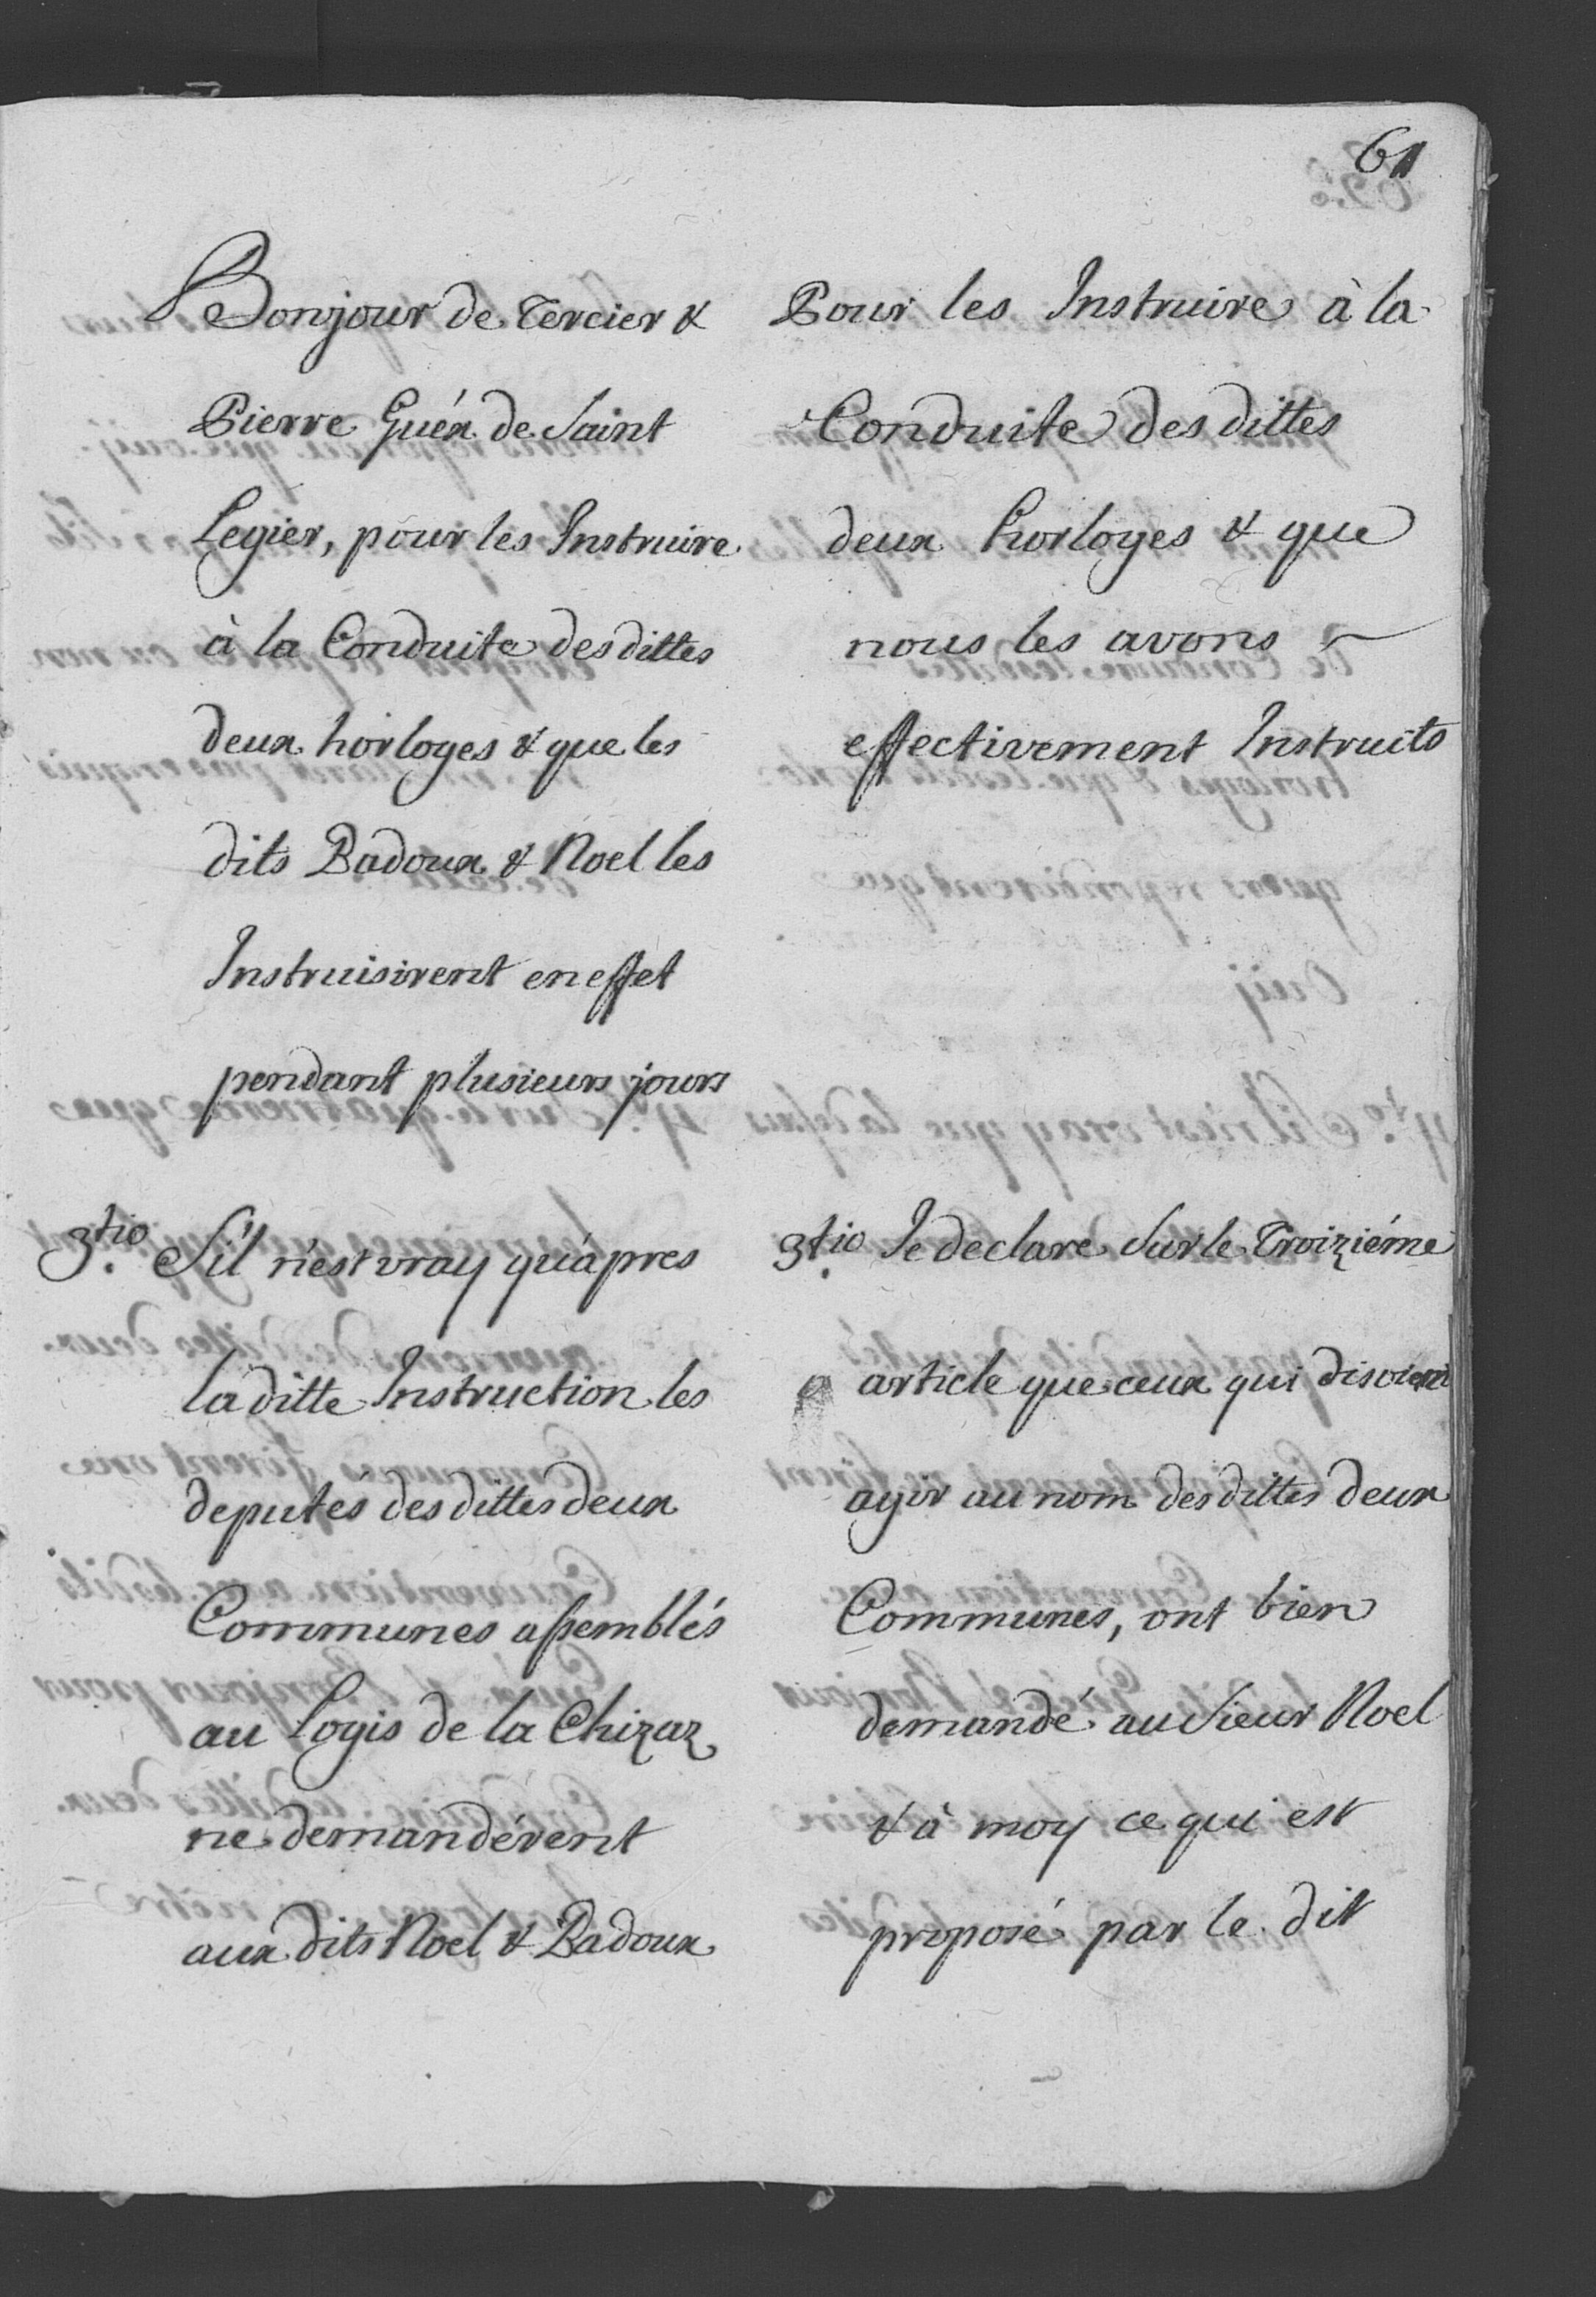 61
Bonjour de Tercier &
Pierre Guéx de Saint
Legier, pour les Instruire
à la Conduite des dittes
deux horloges & que les
dits Badoux & Noel les
Instruisirent en effet
pendant plusieurs jours
3tio. S'il n'est vray qu'apres
la ditte Instruction les
deputés des dittes deux
Communes assemblés
au Logis de la Chizaz
ne demandérent
aux dits Noel & Badoux
Pour les Instruire à la
Conduite des dittes
deux horloges & que
nous les avons ~
effectivement Instruits
3tio. Je declare sur le Troiziéme
article que ceux qui disoient
agir au nom des dittes deux
Communes, ont bien
demandé au Sieur Noel
& à moy ce qui est
proposé par le dit